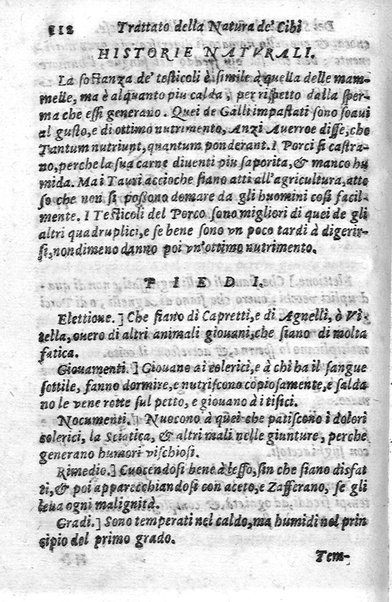 112 Trattato della Natura de' Cibi
HISTORIE NATVRALI.
La sostanza de' testicoli è simile a quella delle mam-
melle, ma è alquanto piu calda, per rispetto della sper-
ma che essi generano. Quei de Galli impastati sono soaui
al gusto, e di ottimo nutrimento, Anzi Auerroe disse, che
Tantum nutriunt, quantum ponderant. I Porci si castra-
no, perche la sua carne diuenti piu saporita, & manco hu
mida. Ma i Tauri accioche siano atti all'agricultura, atte
so che non si possono domare da gli huomini così facil-
mente. I Testicoli del Porco sono migliori di quei de gli
altri quadruplici, e se bene sono vn poco tardi à digerir-
si, nondimeno danno poi vn'ottimo nutrimento.
PIEDI.
Elettione.] Che siano di Capretti, e di Agnelli, ò Vi
tella, ouero di altri animali giouani, che siano di molta
fatica.
Giouamenti.] Giouano ai colerici, e à chi ha il sangue
sottile, fanno dormire, e nutriscono copiosamente, e salda
no le vene rotte sul petto, e giouano à i tisici.
Nocumenti.] Nuocono à quei che patiscono i dolori
colerici, la Sciatica, & altri mali nelle giunture, perche
generano humori vischiosi.
Rimedio.] Cuocendosi bene à lesso, sin che siano disfat
ti, & poi apparecchiandosi con aceto, e Zafferano, se gli
leua ogni malignità.
Gradi.] Sono temperati nel caldo, ma humidi nel prin
cipio del primo grado.
Tem-